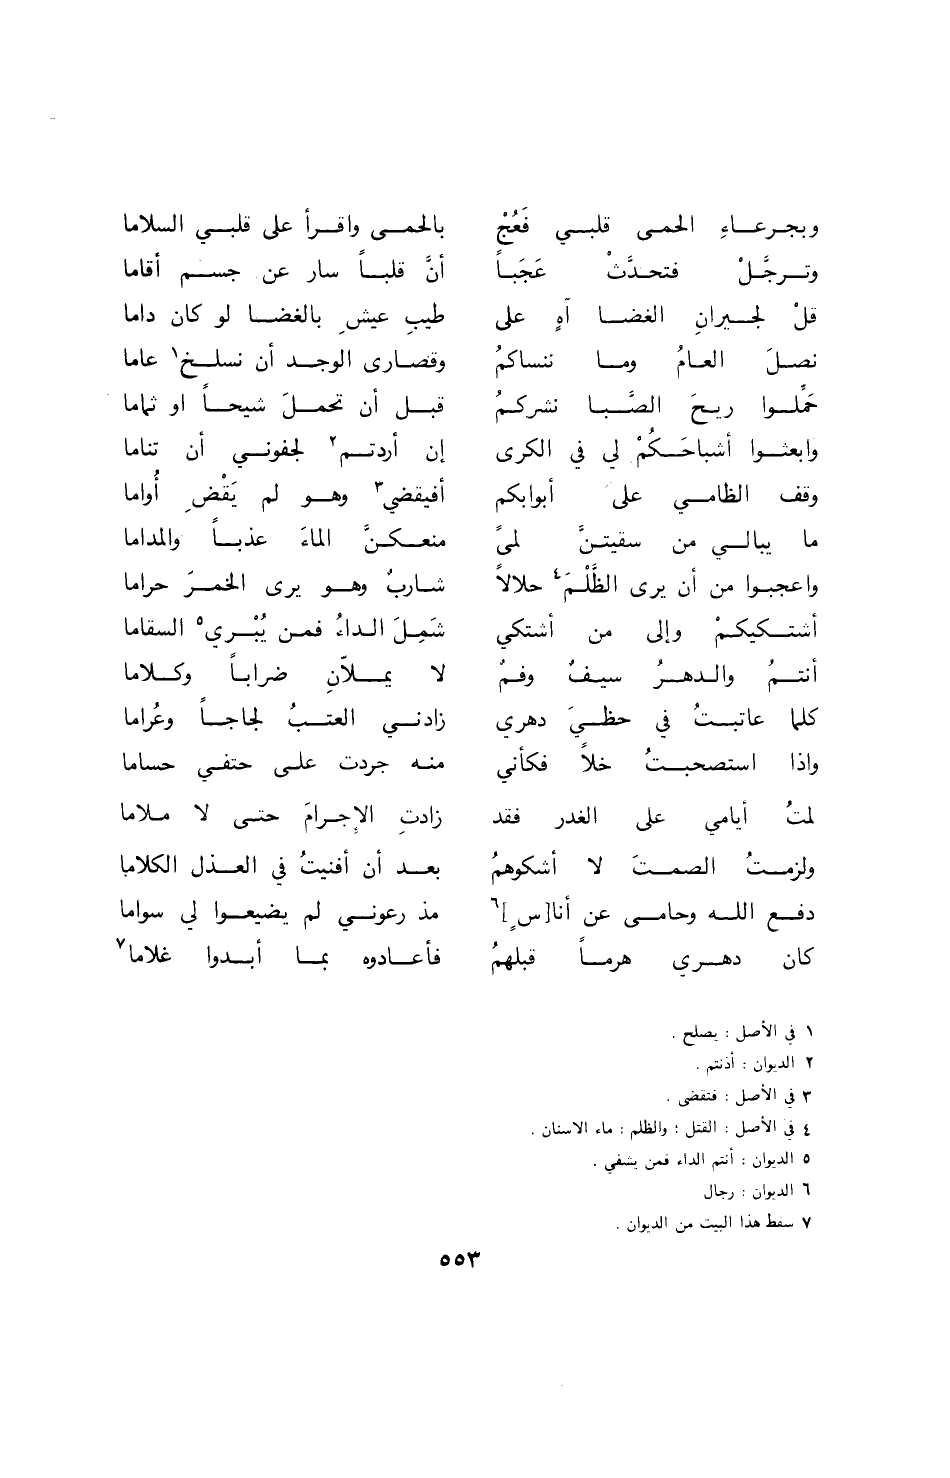 وبجرعاءِ الحمى قلبي فَعُجْ بالحمى واقرأ على قلبي السلاما
وترجَّلْ فتحدَّثْ عَجَباً أنَّ قلباً سار عن جسم أقاما
قلْ لجيرانِ الغضا آهِ على طيبِ عيشٍ بالغضا لو كان داما
نصلَ العامُ وما ننساكمُ وقصارى الوجد أن نسلخ١ عاما
حمَّلوا ريحَ الصَّبا نشركمُ قبل أن تحملَ شيحاً او ثماما
وابعثوا أشباحَكُمْ لي في الكرى إن أردتم٢ لجفوني أن تناما
وقف الظامي على أبوابكم أفيقضي٣ وهو لم يَقْضِ أُواما
ما يبالي من سقيتنَّ لمىً منعكنَّ الماءَ عذباً والمداما
واعجبوا من أن يرى الظَّلْمَ٤ حلالاً شاربٌ وهو يرى الخمرَ حراما
أشتكيكمْ وإلى من أشتكي شَمِلَ الداءُ فمن يُبْري٥ السقاما
أنتمُ والدهرُ سيفٌ وفمٌ لا يملاّنِ ضراباً وكلاما
كلما عاتبتُ في حظيَ دهري زادني العتبُ لجاجاً وغُراما
واذا استصحبتُ خلاً فكأني منه جردت على حتفي حساما
لمتُ أيامي على الغدر فقد زادتِ الإجرامَ حتى لا ملاما
ولزمتُ الصمتَ لا أشكوهمُ بعد أن أفنيتُ في العذل الكلاما
دفع الله وحامى عن أنا[سٍ]٦ مذ رعوني لم يضيعوا لي سواما
كان دهري هرماً قبلهمُ فأعادوه بما أبدوا غلاما٧
١ في الأصل : يصلح .
٢ الديوان : أذنتم .
٣ في الأصل : فتقضى .
٤ في الأصل : القتل ؛ والظلم : ماء الاسنان .
٥ الديوان : أنتم الداء فمن يشفي .
٦ الديوان : رجال
٧ سقط هذا البيت من الديوان .
٥٥٣